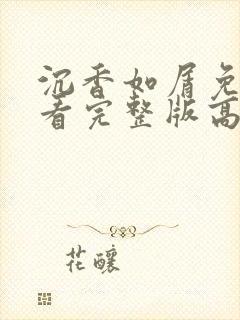 沉香如屑免
看完整版高
花釀